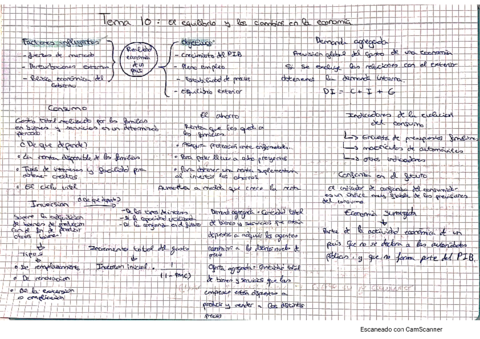 Tema 10: el equilibrio y los cambios en la economía
Factores influyentes
- fuerzas de mercado
- Perturbaciones externas
- Política económica del
Gobierno
Realidad
económica
de un
país
Objetivos
- crecimiento del PIB
- Pleno empleo
- Estabilidad de precios
- equilibrio exterior
Demanda agregada
global del gasto de una economía
Si se excluye las relaciones con el exterior
obtenemos la demanda interna.
DI = C + I + G
Consumo
Gasto total realizado por las familias
en bienes y servicios en un determinado
periodo
¿De que depende?
• La renta disponible de las familias
• Tipos de intereses y facilidad para
obtener créditos
• El ciclo vital
El ahorro
Renta que les queda a
las familias
• Asegura protección ante enfermedades
• Para poder llevar a cabo proyectos
• Para obtener una renta suplementaria
al invertir el ahorro
Aumenta a medida que crece la renta
Indicadores de la evolución
del consumo
↳ encuesta de presupuestos familiares
↳ matriculas de automóviles
↳ otros indicadores
Confianza en el futuro
el indicador de confianza del consumidor
es un índice muy fiable de las previsiones
del consumo
Economía sumergida
Parte de la actividad económica de un
país que no se declara a las autoridades
públicas, y que no forma parte del P.I.B.
Inversión
(De que depende)
- De los tipos de interés
- De la capacidad utilizada
- De la confianza en el futuro
Supone la adquisición
de bienes de producción
con el fin de producir
otros bienes
Tipos
• De reemplazamiento
• De renovación
• De la extensión
o ampliación
Incremento total del gasto
Inversión inicial
Demanda agregada = Cantidad total
de bienes y servicios que están
dispuestos a adquirir los agentes
precio
Oferta agregada = Cantidad total
de bienes y servicios que las
empresas están dispuestas a
producir y vender a los distintos
precios
Escaneado con CamScanner